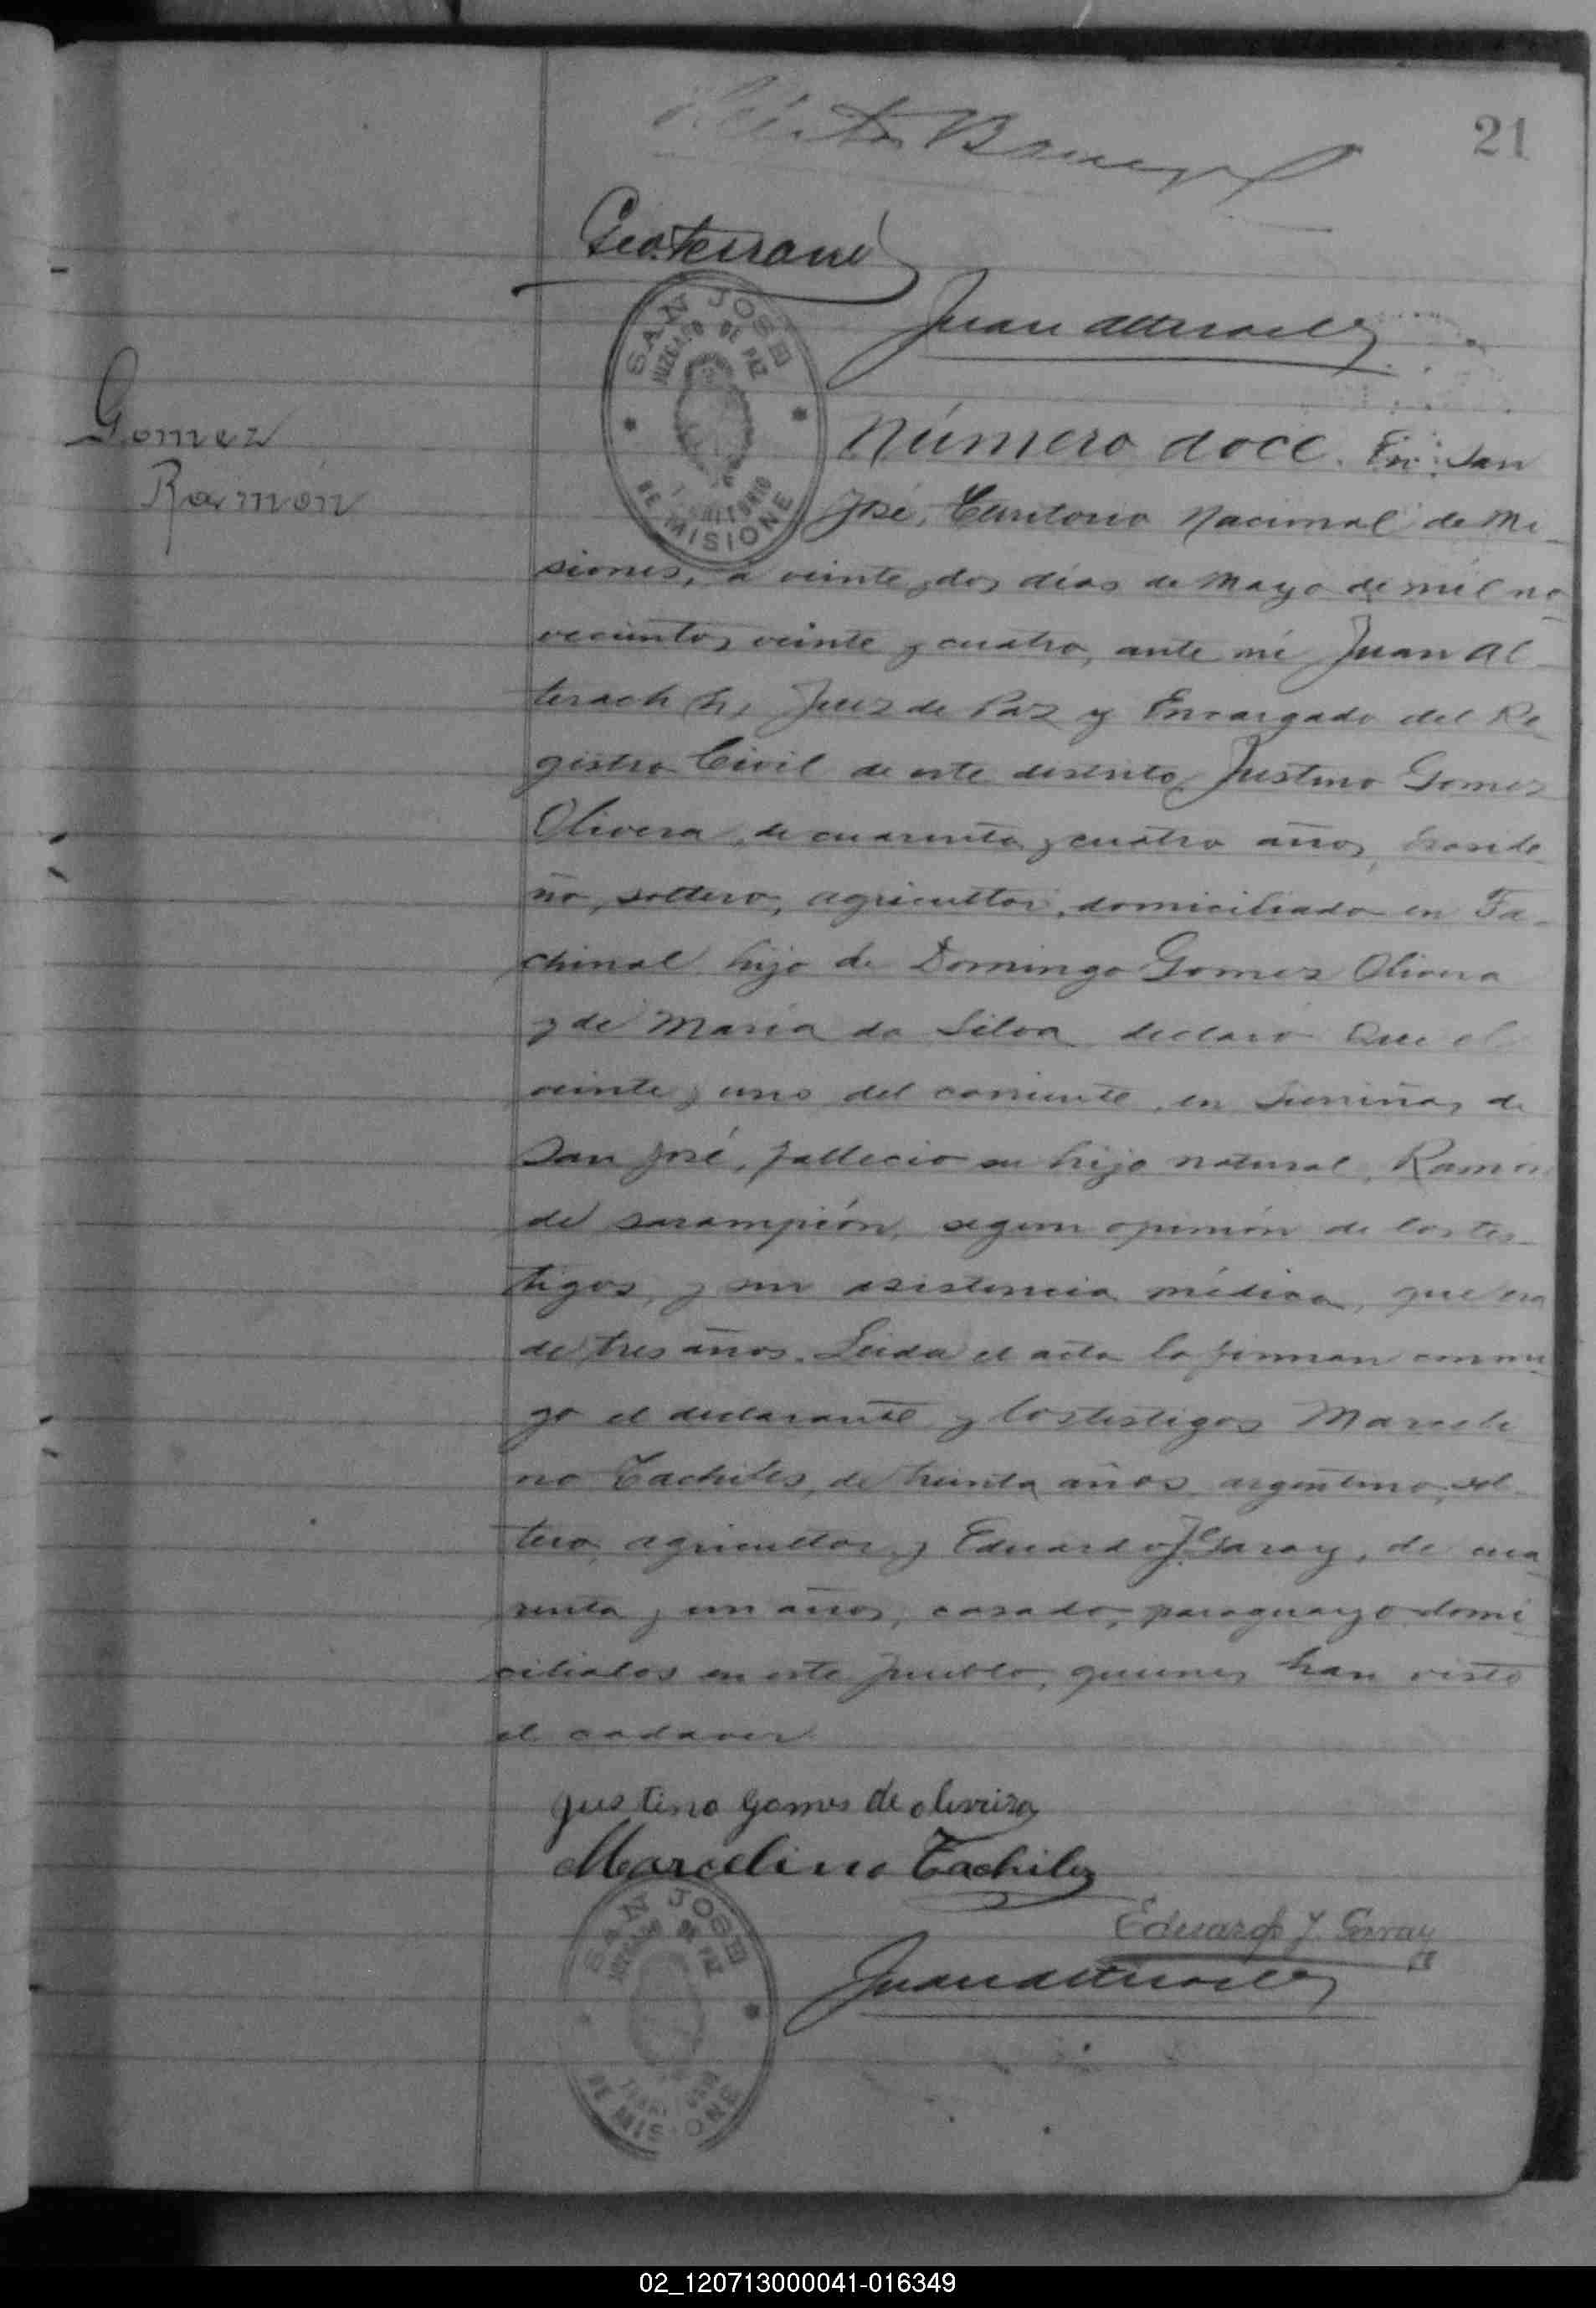 21
Juan Alterach h
SAN JOSE
JUZGADO DE PAZ
TERRITORIO
DE MISIONE
Gomez
Ramón
Número doce. En San
José, Territorio Nacional de Mi-
siones, a veinte y dos días de Mayo de mil no-
vecientos veinte y cuatro, ante mí Juan Al-
terach (h) Juez de Paz y Encargado del Re-
gistro Civil de este distrito, Justino Gomez
Olivera, de cuarenta y cuatro años, brasile-
ño, soltero, agricultor, domiciliado en Fa-
chinal hijo de Domingo Gomez Olivera
y de María da Silva declaró: Que el
veinte y uno del corriente, en de
San José, falleció su hijo natural, Ramón
de sarampión, segun opinión de los tes-
tigos, y sin asistencia médica, que era
de tres años. Leida el acta la firman conmi-
go el declarante y los testigos Marceli-
no Tachiles, de treinta años, argentino, sol-
tero, agricultor y Eduardo J. Garay, de cua-
renta y un años, casado, paraguayo domi-
ciliados en este pueblo, quienes han visto
el cadaver
justino gomes de oliveira
Marcelino Tachiles
Eduardo J. Garay
Juan Alterach h
SAN JOSE
JUZGADO DE PAZ
DE MISIONE
02_120713000041-016349